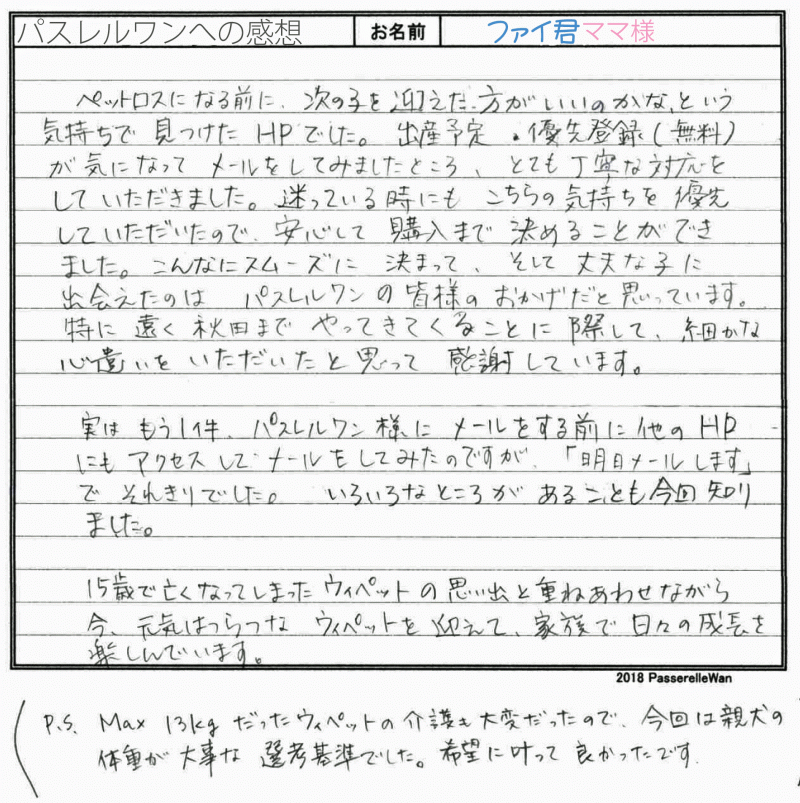 パスレルワンへの感想 お名前 ファイ君ママ様
ペットロスになる前に、次の子を迎えた方がいいのかな、という
気持ちで見つけたHPでした。出産予定・優先登録(無料)
が気になってメールをしてみましたところ、とても丁寧な対応を
していただきました。迷っている時にもこちらの気持ちを優先
していただいたので、安心して購入まで決めることができ
ました。こんなにスムーズに決まって、そして丈夫な子に
出会えたのはパスレルワンの皆様のおかげだと思っています。
特に遠く秋田までやってきてくることに際して、細かな
心遣いをいただいたと思って感謝しています。
実はもう1件、パスレルワン様にメールをする前に他のHP
にもアクセスしてメールをしてみたのですが、「明日メールします」
でそれきりでした。いろいろなところがあることも今回知り
ました。
15歳で亡くなってしまったウィペットの思い出と重ねあわせながら
今、元気はつらつなウィペットを迎えて、家族で日々の成長を
楽しんでいます。
2018 PasserelleWan
P.S. Max 13kgだったウィペットの介護も大変だったので、今回は親犬の
体重が大事な選考基準でした。希望に叶って良かったです。